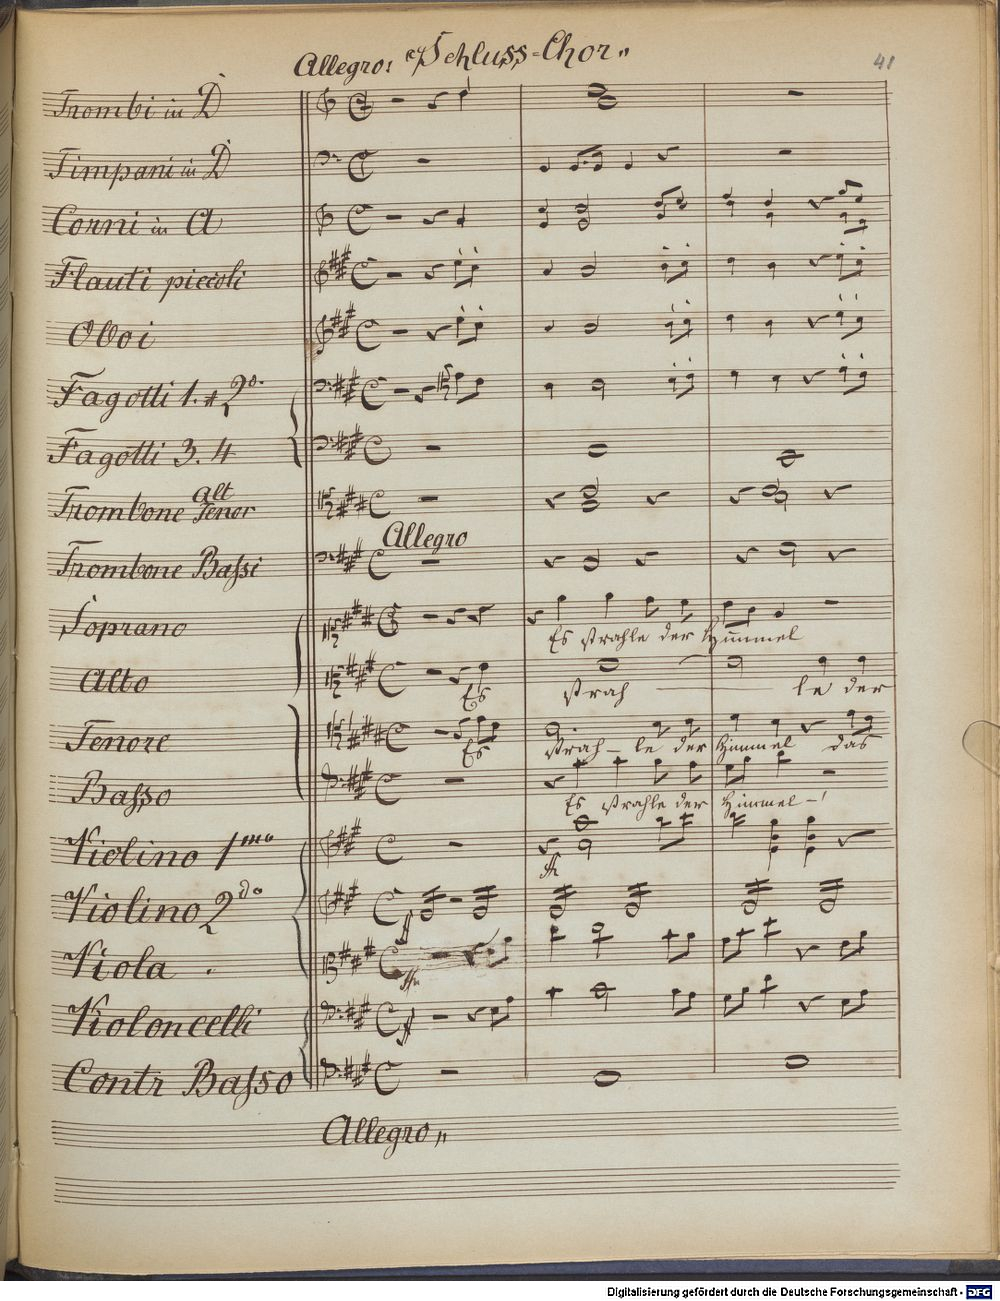 Allegro: "Schluss-Chor"
41
Trombi in D
Timpani in D
Corni in A
Flauti piccoli
Oboi
Fagotti 1. + 2do.
Fagotti 3. 4
Trombone Alt Tenor
Allegro
Trombone Bassi
Soprano
Es strahle der Himmel
Alto
Es strah le der
Tenore
Es strah-le der Himmel das
Basso
Es strahle der Himmel-!
Violino 1mo
Violino 2do
Viola.
Violoncelli
Contr Basso
Allegro"
Digitalisierung gefördert durch die Deutsche Forschungsgemeinschaft - DFG